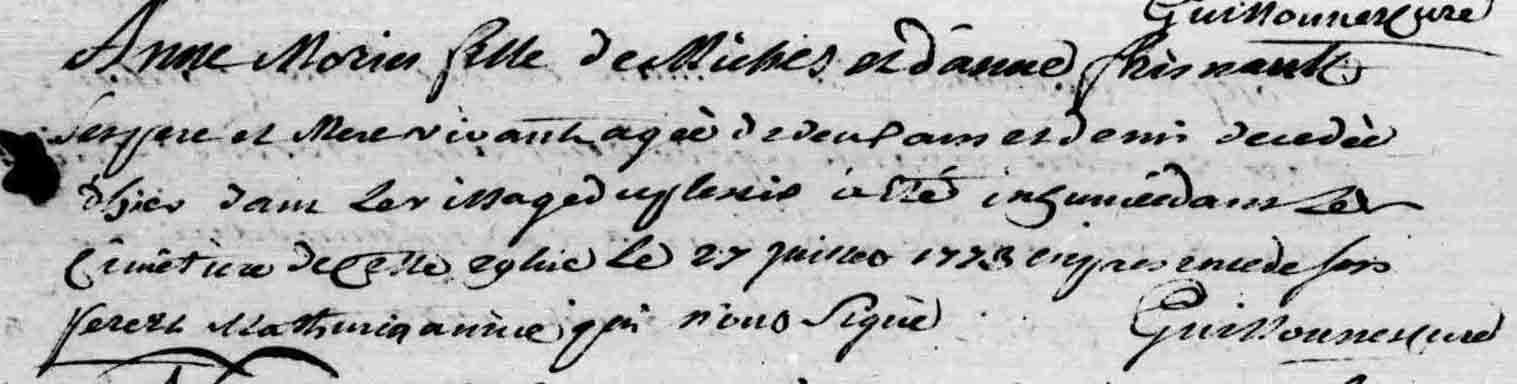 Guillonner curé
Anne Morin fille de Michel et d'anne
ses pere et Mere vivants agée de deux ans et demi decedée
d'hier dans Le village du plessis a été inhumée dans Le
Cimetiere de cette eglise Le 27 juillet 1773 en presence de son
pere et Mathurin qui n'ont signé Guillonner curé